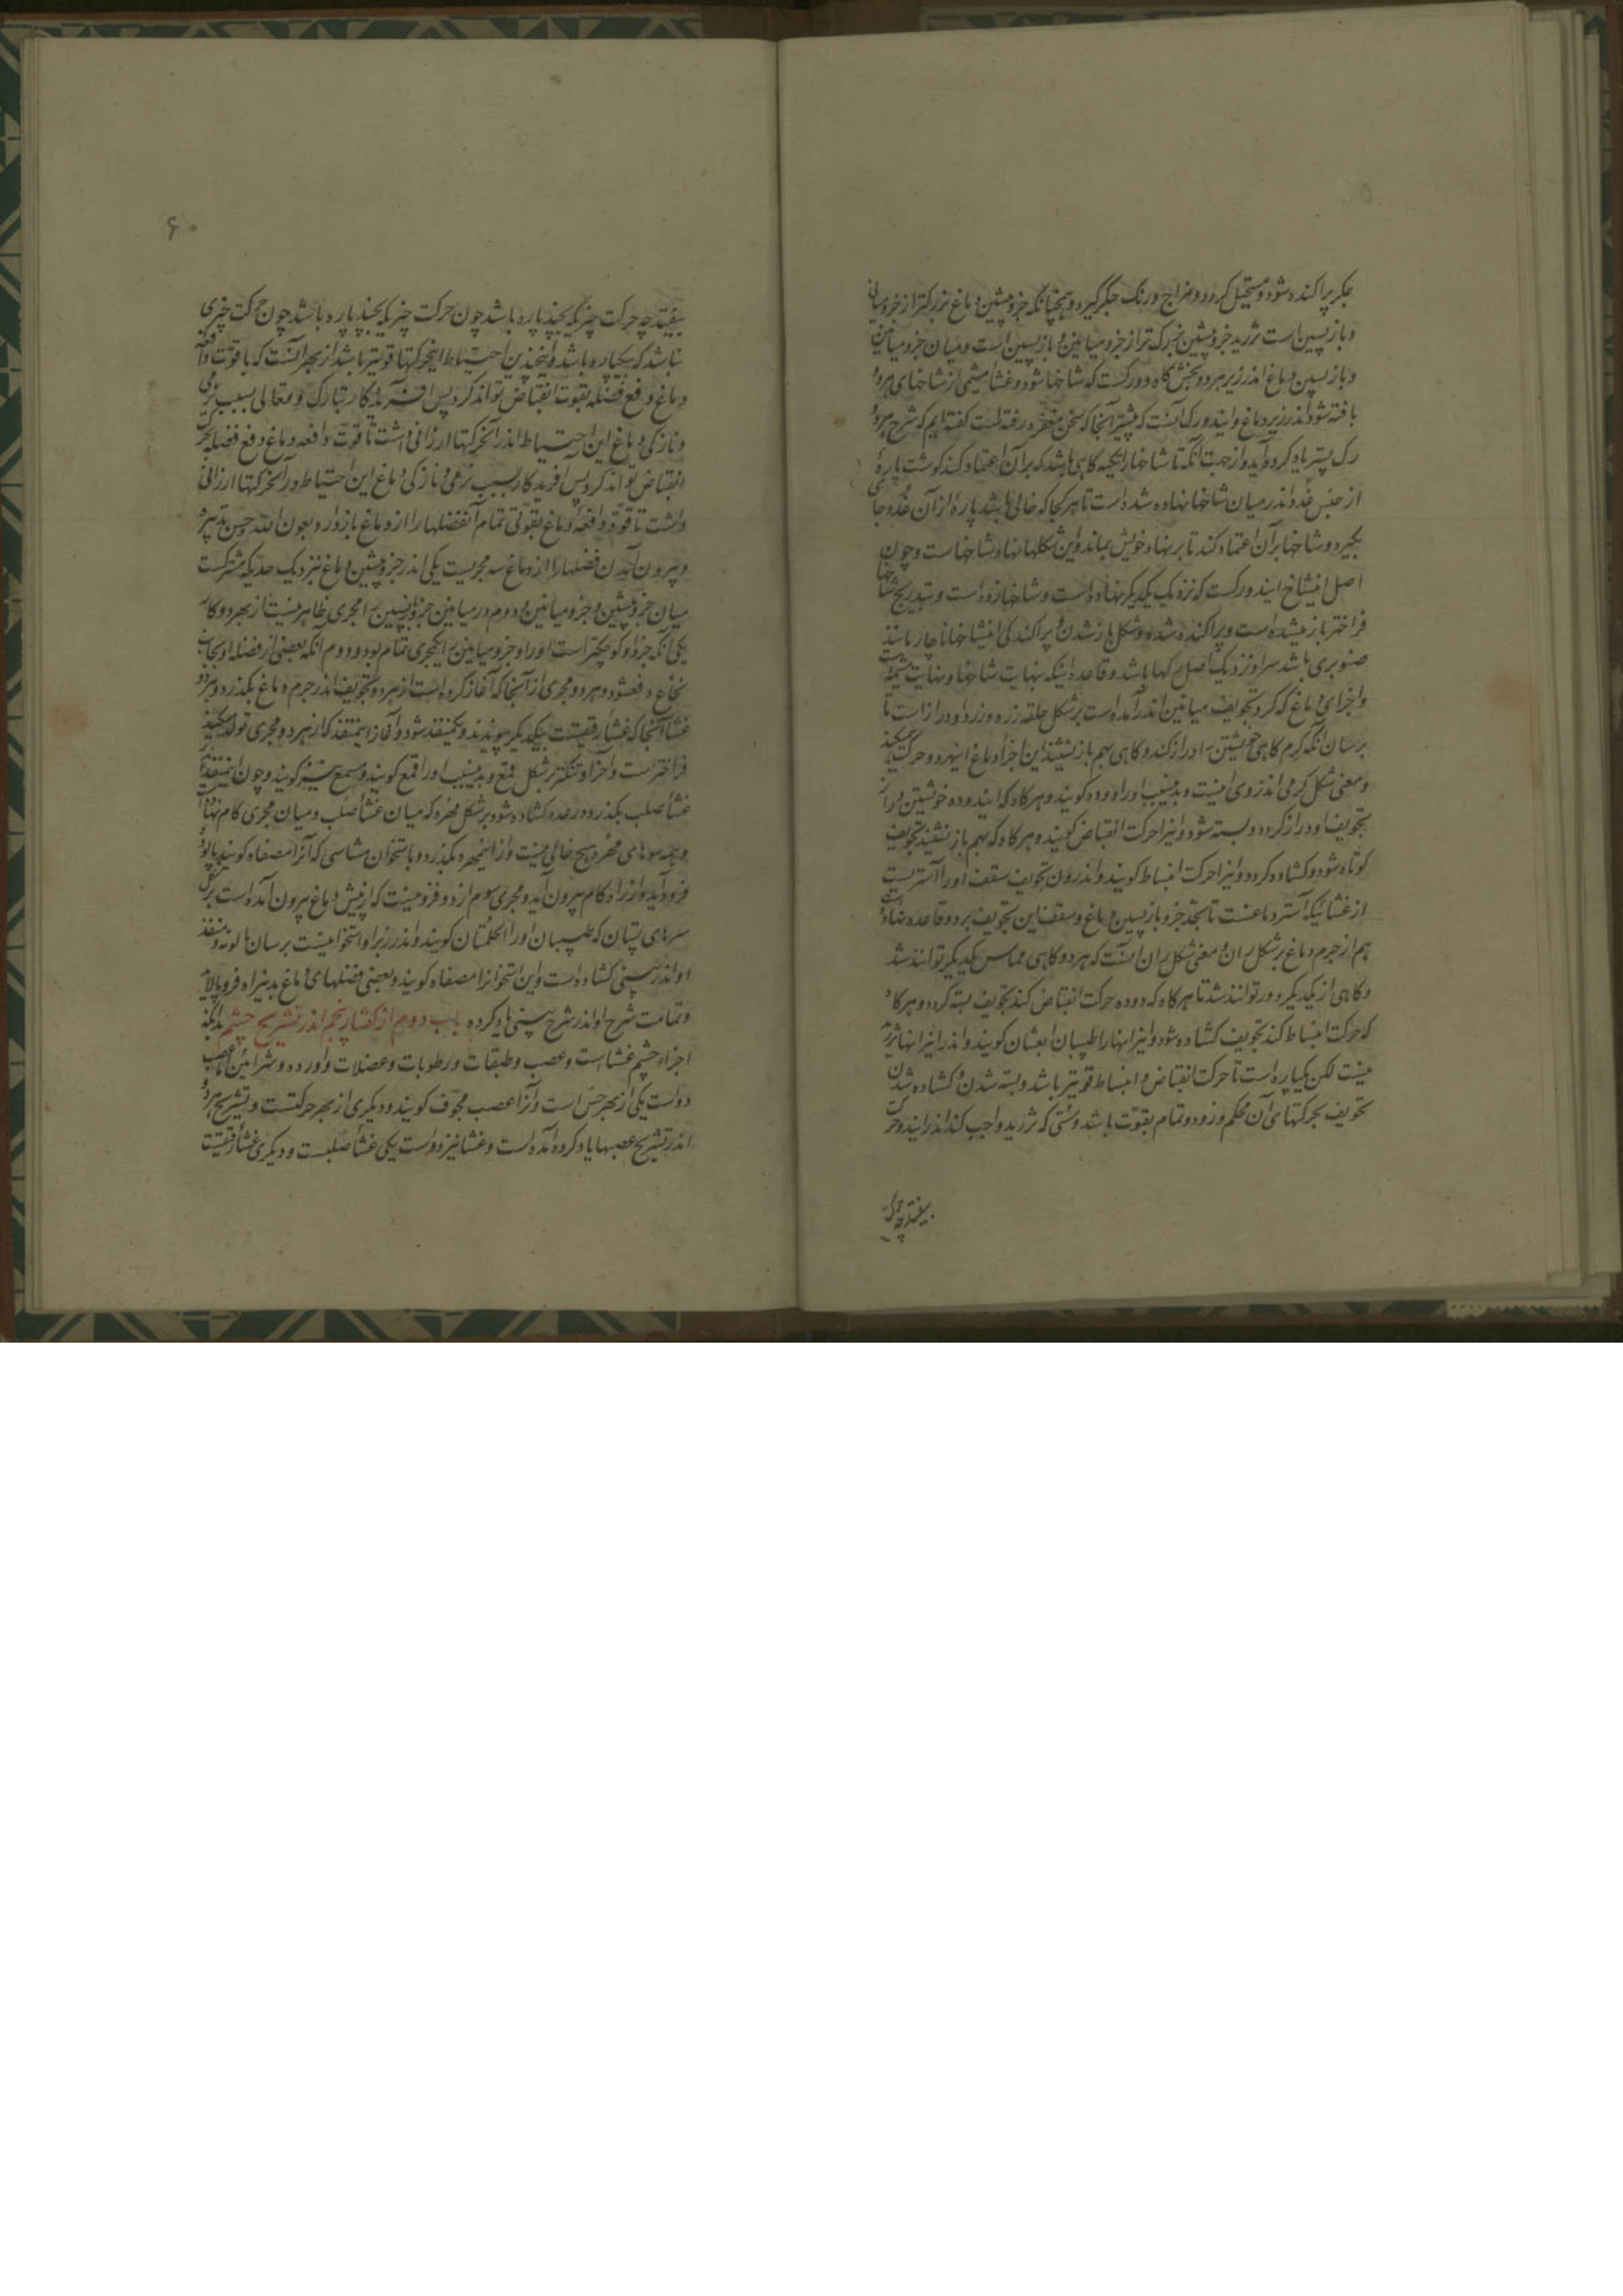 جکر پراکنده شود و مستحیل کردد و مزاج و رنک جکر کیرد و همچنانکه جزو پیشین دماغ بزرکتر از جزو میانین
و باز پسین است ثرید جزو پیشین بزرک تر از جزو میانین و باز پسین است و میان جزو میانین
و باز پسین دماغ اندر زیر هر دو بخش کاه دو رکست که شاخها شود و غشاء مشیمی از شاخهای هر دو
بافته شود اندر زیر دماغ و این دو رک آنست که پیشتر آنجا که سخن مغز در رفته است کفته ایم که شرح هر دو
رک پستر یاد کرده آید و از جهت آنکه تا شاخها را تکیه کاهی باشد که بر آن اعتماد کند کوشت پارهٔ
از جنس غدد اندر میان شاخها نهاده شده است تا هر کجا که خالی باشد پارهٔ از آن غدد جای
بکیرد و شاخها بر آن اعتماد کند تا بر نهاد خویش بماند و این شکلها نهاد شاخهاست و چون
اصل این شاخ این دو رکست که نزدیک یکدیکر نهاده است و شاخها زده است و بتدریج شاخها
فراختر باز میشده است و پراکنده شده و شکل باز شدن و پراکندکی این شاخها ناچار مانند
صنوبری باشد سر او نزدیک اصل رکها باشد و قاعده اینکه نهایت شاخها و نهایت مشیمه است
و اجزای دماغ که کرد تجویف میانین اندر آمده است بر شکل حلقه زره و زرد او دراز است تا
بر سان آنکه کرم کاهی خویشتن را دراز کند و کاهی بهم باز نشیند این اجزا دماغ اینهر دو حرکت میکند
و معنی شکل کرمی اندر وی اینست و بدینسبب او را دوده کویند و هر کاه که این دوده خویشتن دراز
تجویف او دراز کردد و بسته شود و اینرا حرکت انقباض کویند و هر کاه که بهم باز نشیند تجویف
کوتاه شود و کشاده کردد و اینرا حرکت انبساط کویند و اندرون تجویف سقف او را آستریست
از غشائیکه آستر دماغست تا بحد جزو باز پسین دماغ و سقف این تجویف بر دو قاعده نهاده است
هم از جرم دماغ بر شکل ران و معنی شکل ران آنست که هر دو کاهی مماس یکدیکر توانند شد
و کاهی از یکدیکر دور توانند شد تا هر کاه که دوده حرکت انقباض کند تجویف بسته کردد و هر کاه
که حرکت انبساط کند تجویف کشاده شود و اینرا نهارا طبیبان کویند و اندر
نیست لکن یکپاره است تا حرکت انقباض و انبساط قویتر باشد و بسته شدن و کشاده شدن
تجویف بحرکتهای آن محکم و زود و تمام بقوت باشد و سستی که ثرید واجب کند اندر این دو حرکت
بیفتد چه حرکت
۶۰
بیفتد چه حرکت چیزیکه بچند پاره باشد چون حرکت چیزیکه بچند پاره باشد چون حرکت چیزی
نباشد که یکپاره باشد و بچندین احتیاط اینحرکتها قویتر باشد از بهر آنست که با قوت دافعه
دماغ دفع فضله بقوت انقباض تواند کرد پس آفریدکار تبارک و تعالی بسبب نرمی
و نازکی دماغ این احتیاط اندر آنحرکتها ارزانی داشت تا قوت دافعه دماغ دفع فضله بحرکت
انقباض تواند کرد پس آفریدکار بسبب نرمی و نازکی دماغ این احتیاط در آنحرکتها ارزانی
داشت تا قوت دافعه دماغ بقوتی تمام آنفضلها را از دماغ باز دارد بعون الله و حسن تدبیره
و بیرون آمدن فضلها را از دماغ سه مجریست یکی اندر جزو پیشین دماغ نزدیک حدیکه مشترکست
میان جزو پیشین و جزو میانین دوم در میانین جزو پسین را مجری ظاهر نیست از بهر دو کار
یکی آنکه جزو او کوچکتر است او را و جزو میانین را یکمجری تمام بود و دوم آنکه بعضی از فضله او بجانب
نخاع دفع شود و هر دو مجری از آنجا که آغاز کرده است از هر دو تجویف اندر جرم دماغ بکذرد و هر دو
غشا آنجا که غشاء رقیقست بیکدیکر پیوندند و یکمنفذ شود و آغاز اینمنفذ که از هر دو مجری تولد میکند
فراختر است و آخر او تنکتر بر شکل قمع و بدینسبب او را قمع کویند و مستنقع نیز کویند و چون اینمنفذ از
غشاء صلب بکذرد در غده کشاده شود بر شکل مهره که میان غشاء صلب و میان مجری کام نهاده
و همه سوهای مهره هیچ خالی نیست و از اینمهره بکذرد و باستخوان مشاسی که آنرا مصفاه کویند پالوده
فرود آید و از راه کام بیرون آید و مجری سوم از دو فزونیست که از پیش دماغ بیرون آمده است بر شکل
سرهای پستان که طبیبان او را الحلمتان کویند و اندر زیر او استخوانیست برسان پالونه و منفذ
او اندر بینی کشاده است و این استخوانرا مصفاه کویند و بعضی فضلهای دماغ بدین راه فرو پالاید
و تمامت شرح او اندر شرح بینی یاد کرده باب دوم از کفتار پنجم اندر تشریح چشم بدانکه
اجزاء چشم غشاست و عصب و طبقات و رطوبات و عضلات و اورده و شرائین اما عصب
دو است یکی از بهر حس است و آنرا عصب مجوف کویند و دیکری از بهر حرکتست و تشریح هر دو
اندر تشریح عصبها یاد کرده آمده است و غشا نیز دو است یکی غشاء صلبست و دیکری غشاء رقیقست